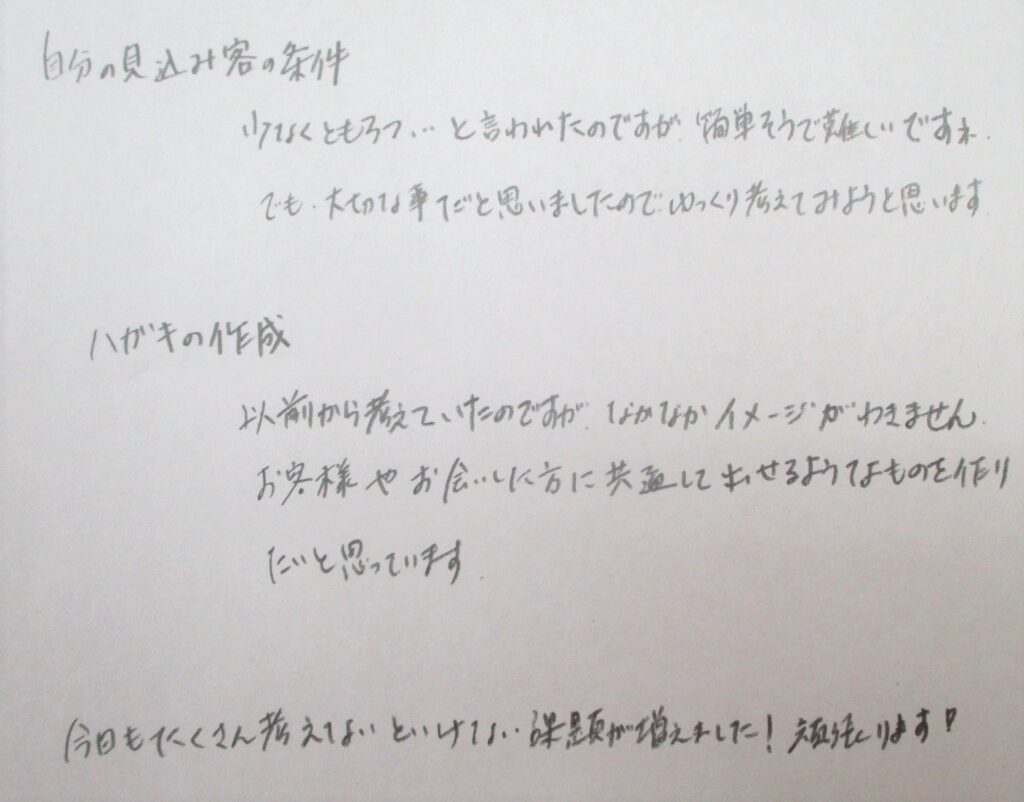 自分の見込み客の条件
少なくとも3つ…と言われたのですが、簡単そうで難しいですネ.
でも、大切な事だと思いましたのでゆっくり考えてみようと思います
ハガキの作成
以前から考えていたのですが、なかなかイメージがわきません.
お客様やお会いした方に共通して出せるようなものを作り
たいと思っています.
今日もたくさん考えないといけない課題が増えました! 頑張ります!